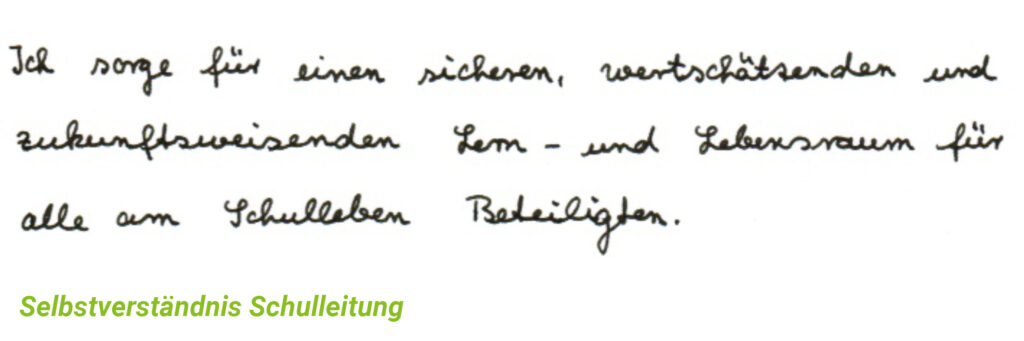 Ich sorge für einen sicheren, wertschätzenden und
zukunftsweisenden Lern - und Lebensraum für
alle am Schulleben Beteiligten.
Selbstverständnis Schulleitung